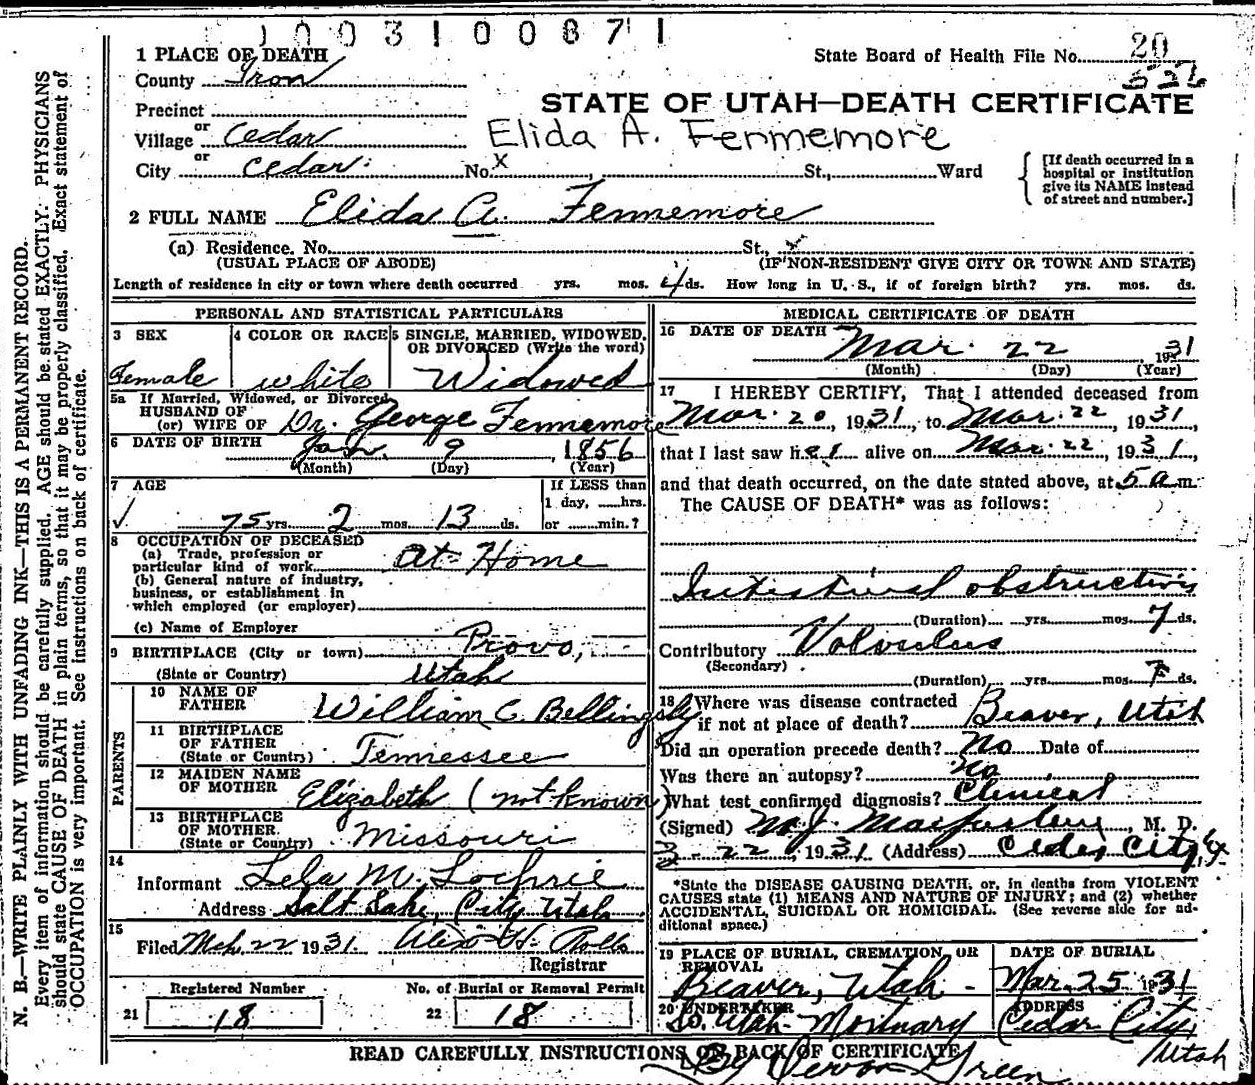 1003100871
1 PLACE OF DEATH
State Board of Health File No. 20
526
County Iron
Precinct
STATE OF UTAH—DEATH CERTIFICATE
Village or Cedar
Elida A. Fennemore
City or Cedar. No. X St., Ward
[If death occurred in a hospital or institution give its NAME instead of street and number.]
2 FULL NAME Elida A. Fennemore
(a) Residence. No. St.,
(USUAL PLACE OF ABODE) (IF NON-RESIDENT GIVE CITY OR TOWN AND STATE)
Length of residence in city or town where death occurred yrs. mos. 4 ds. How long in U. S., if of foreign birth? yrs. mos. ds.
PERSONAL AND STATISTICAL PARTICULARS
3 SEX
Female
4 COLOR OR RACE
white
5 SINGLE, MARRIED, WIDOWED, OR DIVORCED (Write the word)
Widowed
5a If Married, Widowed, or Divorced
HUSBAND OF
(or) WIFE OF Dr. George Fennemore
6 DATE OF BIRTH Jan. 9, 1856
(Month) (Day) (Year)
7 AGE
75 yrs. 2 mos. 13 ds.
If LESS than 1 day, ......hrs. or ......min.?
8 OCCUPATION OF DECEASED
(a) Trade, profession or particular kind of work At Home
(b) General nature of industry, business, or establishment in which employed (or employer)
(c) Name of Employer
9 BIRTHPLACE (City or town) Provo,
(State or Country) Utah
PARENTS
10 NAME OF FATHER William C. Bellingsly
11 BIRTHPLACE OF FATHER (State or Country) Tennessee
12 MAIDEN NAME OF MOTHER Elizabeth (not known)
13 BIRTHPLACE OF MOTHER (State or Country) Missouri
14
Informant Lela M. Lochrie
Address Salt Lake, City Utah
15
Filed Mch. 22 1931. Alex H. Rollo
Registrar
Registered Number
21 18
No. of Burial or Removal Permit
22 18
MEDICAL CERTIFICATE OF DEATH
16 DATE OF DEATH Mar. 22, 1931
(Month) (Day) (Year)
17 I HEREBY CERTIFY, That I attended deceased from
Mar. 20, 1931, to Mar. 22, 1931,
that I last saw her alive on Mar. 22, 1931,
and that death occurred, on the date stated above, at 5 a m.
The CAUSE OF DEATH* was as follows:
Intestinal obstruction
(Duration) yrs. mos. 7 ds.
Contributory Volvulus
(Secondary)
(Duration) yrs. mos. 7 ds.
18 Where was disease contracted
if not at place of death? Beaver, Utah
Did an operation precede death? No Date of
Was there an autopsy? No
What test confirmed diagnosis? Clinical
(Signed) M J. Macfarlane, M. D.
3-22, 1931 (Address) Cedar City, U.
*State the DISEASE CAUSING DEATH, or, in deaths from VIOLENT
CAUSES state (1) MEANS AND NATURE OF INJURY; and (2) whether
ACCIDENTAL, SUICIDAL OR HOMICIDAL. (See reverse side for ad-
ditional space.)
19 PLACE OF BURIAL, CREMATION, OR REMOVAL
Beaver, Utah
DATE OF BURIAL
Mar. 25 1931
20 UNDERTAKER
So. Utah Mortuary
ADDRESS
Cedar City,
Utah
By Vernon Green
READ CAREFULLY INSTRUCTIONS ON BACK OF CERTIFICATE
N. B.—WRITE PLAINLY WITH UNFADING INK—THIS IS A PERMANENT RECORD.
Every item of information should be carefully supplied. AGE should be stated EXACTLY. PHYSICIANS
should state CAUSE OF DEATH in plain terms, so that it may be properly classified. Exact statement of
OCCUPATION is very important. See instructions on back of certificate.